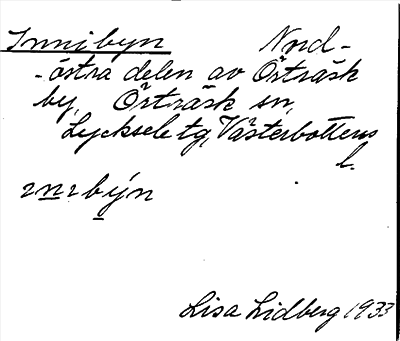 Innibyn Nord-
-östra delen av Örträsk
by, Örträsk sn,
Lycksele tg, Västerbottens
l.
Lisa Lidberg 1933